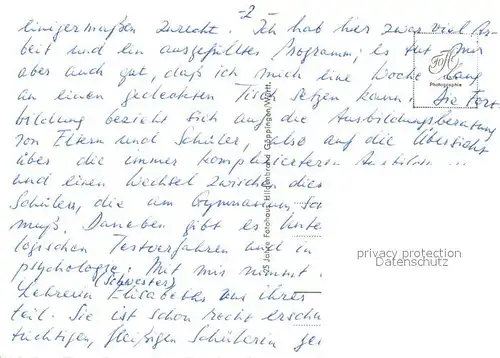 -2-
einigermaßen zurecht. Ich hab hier zwar viel Ar-
beit und ein ausgefülltes Programm; es tut mir
aber auch gut, daß ich mich eine Woche lang
an einen gedeckten Tisch setzen kann. Die Fort
bildung bezieht sich auf die Ausbildungsberatung
von Eltern und Schüler, also auf die Übersicht
über die immer komplizierteren
und einen Wechsel zwischen dies
Schülern, die am Gymnasium
muß. Daneben gibt es Unte
logischen Testverfahren und in
psychologie. Mit mir nimmt
(Schwester)
Lehrerin Elisabeths aus ihres
teil. Sie ist schon recht erscha
tüchtigen, fleißigen Schülerin ges
Foto
Photographie
Jahre Fotohaus Hillenbrand Göppingen/Württ.
privacy protection
Datenschutz